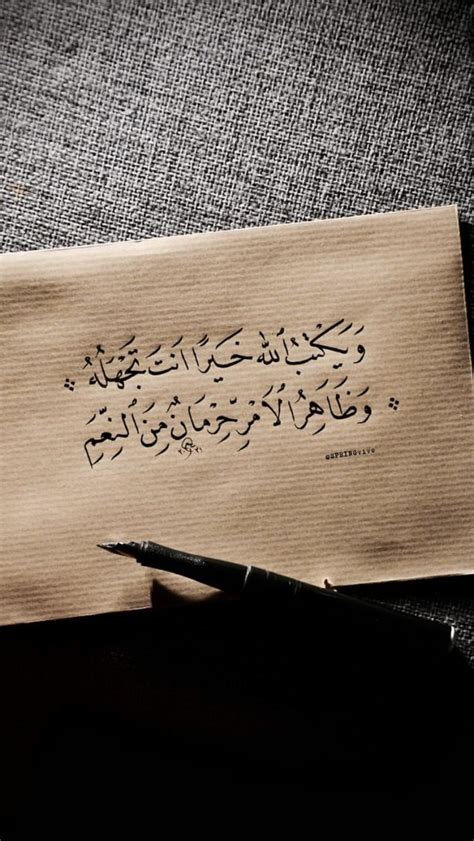 وَيَكْتُبُ ٱلله خَيرًا انتَ تَجْهَلُهُ
وَظَاهِرُ الْامْرِ حِرْمَانٌ مِنَ ٱلنِّعَمِ
@SPRINGvive